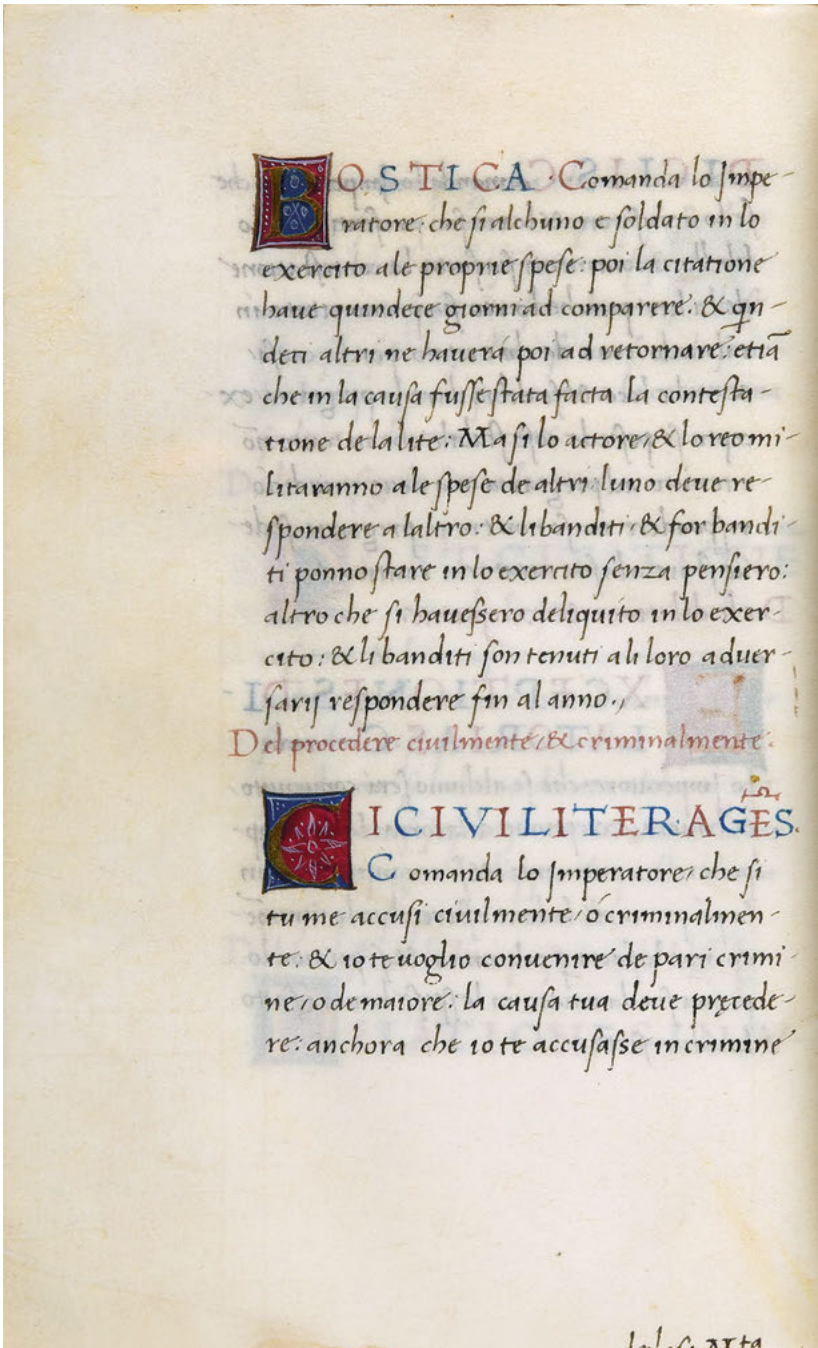 BOSTICA · Comanda lo Impe-
ratore: che si alchuno e soldato in lo
exercito a le proprie spese: poi la citatione
have quindece giorni ad comparere. & qn-
deci altri ne haverá poi ad retornare: etiā
che in la causa fusse stata facta la contesta-
tione de la lite: Ma si lo actore, & lo reo mi-
litaranno a le spese de altri luno deve re-
spondere a laltro: & li banditi, & for bandi-
ti ponno stare in lo exercito senza pensiero:
altro che si havessero deliquito in lo exer-
cito: & li banditi son tenuti a li loro adver-
sarij respondere fin al anno.,
Del procedere civilmente, & criminalmente.
CI CIVILITER · AGĒS.
Comanda lo Imperatore, che si
tu me accusi civilmente, ó criminalmen-
te: & io te voglio convenire de pari crimi-
ne, o de maiore: la causa tua deve pręcede-
re: anchora che io te accusasse in crimine